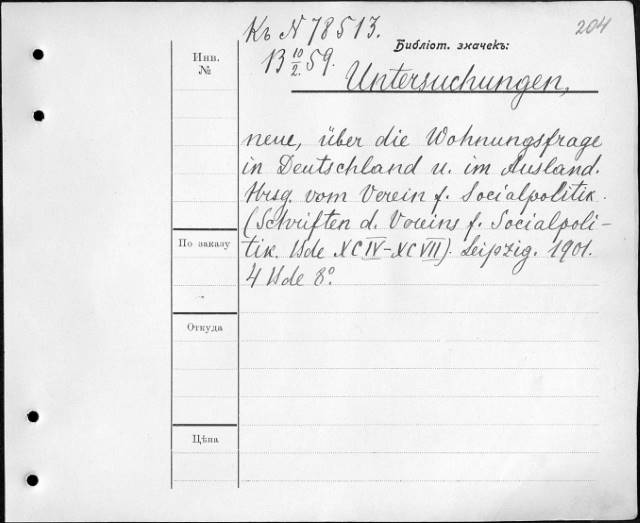 Къ N 78513.
204
Библіот. значекъ:
B 10/2. 59.
Инв.
№
Untersuchungen,
neue, über die Wohnungsfrage
in Deutschland u. im Ausland.
Hrsg. vom Verein f. Socialpolitik.
(Schriften d. Vereins f. Socialpoli-
tik. Bde XCIV–XCVII). Leipzig. 1901.
4 Bde 8º
По заказу
Откуда
Цѣна